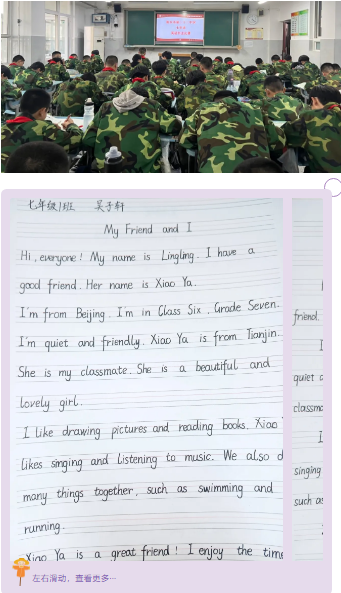 七年级1班 吴子轩
My Friend and I
Hi, everyone! My name is Lingling. I have a
good friend. Her name is Xiao Ya.
I'm from Beijing. I'm in Class Six, Grade Seven.
I'm quiet and friendly. Xiao Ya is from Tianjin.
She is my classmate. She is a beautiful and
lovely girl.
I like drawing pictures and reading books. Xiao
likes singing and listening to music. We also d
many things together, such as swimming and
running.
Xiao Ya is a great friend! I enjoy the time
friend.
I
quiet a
classma
I
singing
such as
左右滑动，查看更多…